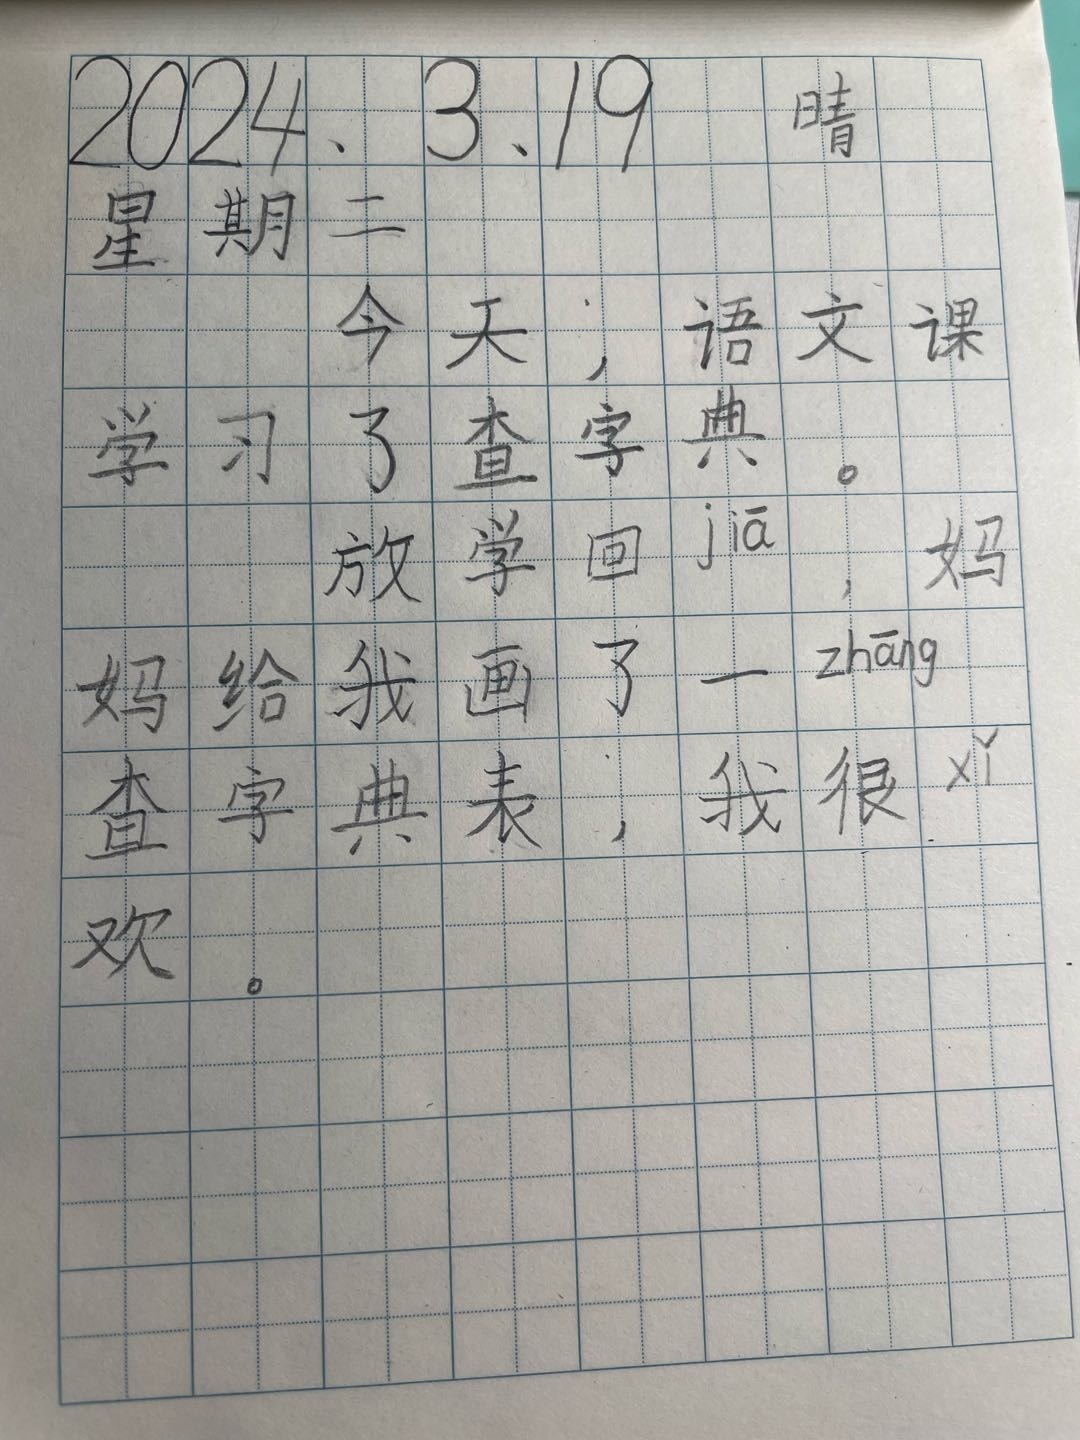 2024、3、19 晴
星期二
今天，语文课
学习了查字典。
放学回jiā，妈
妈给我画了一zhāng
查字典表，我很xǐ
欢。